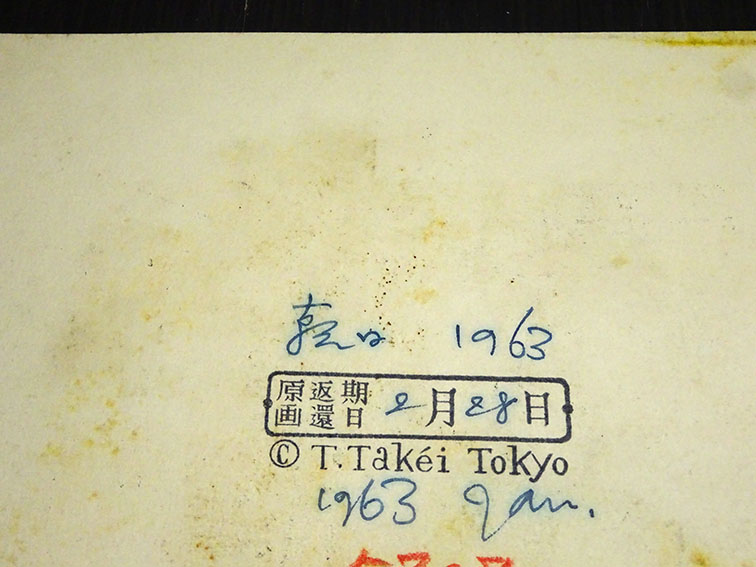 1963
原画 返還 期日 2月28日
© T.Takéi Tokyo
1963 Jan.